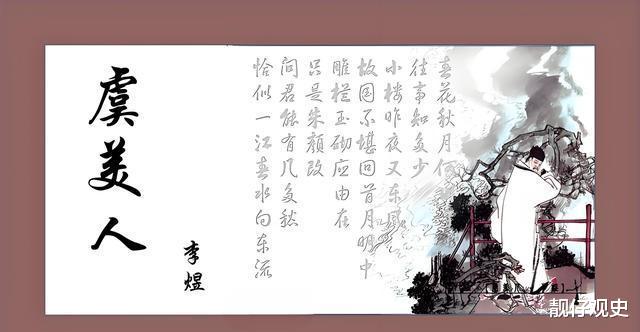 虞美人
李煜
春花秋月何
往事知多少
小楼昨夜又东风
故国不堪回首月明中
雕栏玉砌应由在
只是朱颜改
问君能有几多愁
恰似一江春水向东流
靓仔观史